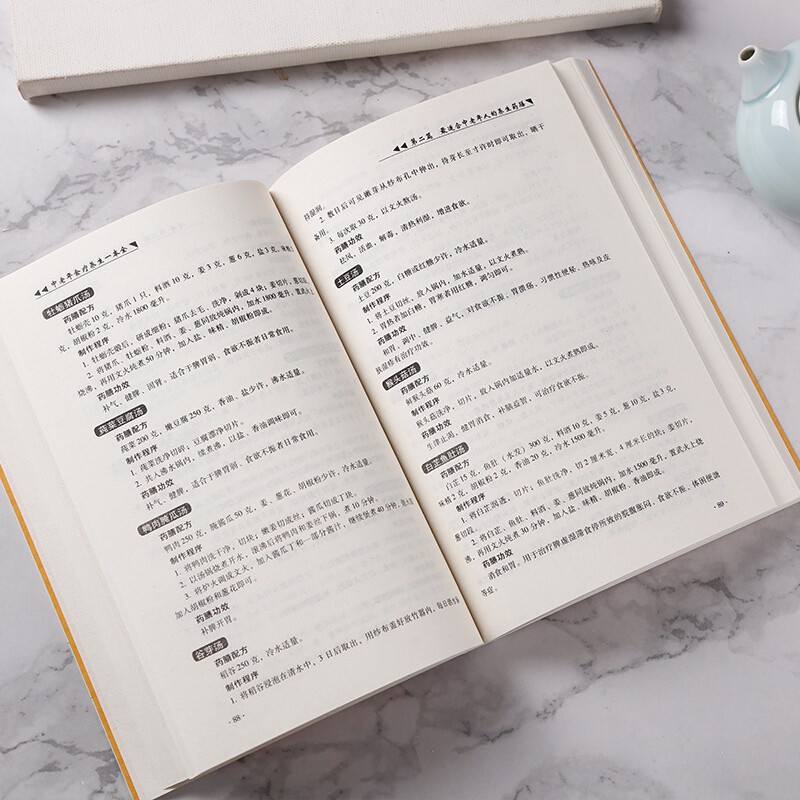 中老年食疗养生一本全
牡蛎猪爪汤
药膳配方
牡蛎壳 10 克，猪爪 1 只，料酒 10 克，姜 3 克，葱 6 克，盐 3 克，味精
克，胡椒粉 2 克，冷水 1800 毫升。
制作程序
1. 牡蛎壳煅后，研成细粉，猪爪去毛、洗净，剁成 4 块；姜切片，葱切段。
2. 将猪爪、牡蛎粉、料酒、姜、葱同放炖锅内，加水 1800 毫升，置武火上
烧沸，再用文火炖煮 50 分钟，加入盐、味精、胡椒粉即成。
药膳功效
补气，健脾，固胃。适合于脾胃弱、食欲不振者日常食用。
莼菜豆腐汤
药膳配方
莼菜 200 克，嫩豆腐 250 克，香油、盐少许，沸水适量。
制作程序
1. 莼菜洗净切碎；豆腐漂净切片。
2. 共入沸水锅内，续煮沸，以盐、香油调味即可。
药膳功效
补气，健脾。适合于脾胃弱、食欲不振者日常食用。
鸭肉腌瓜汤
药膳配方
鸭肉 250 克，腌酱瓜 50 克，姜、葱花、胡椒粉少许，冷水适量。
制作程序
1. 将鸭肉洗干净，切块；嫩姜切成丝；酱瓜切成丁块。
2. 以汤锅烧煮开水，滚沸后将鸭肉和姜丝下锅，煮 10 分钟。
3. 将炉火调成文火，加入酱瓜丁和一部分酱汁，继续煲煮 40 分钟，
加入胡椒粉和葱花即可。
药膳功效
补脾开胃。
谷芽汤
药膳配方
稻谷 250 克，冷水适量。
制作程序
1. 将稻谷浸泡在清水中，3 日后取出，用纱布盖好放竹器内，每日洒水
· 88 ·
第二篇 最适合中老年人的养生药膳
持湿润。
2. 数日后可见嫩芽从纱布孔中伸出，待芽长至寸许时即可取出，晒干
备用。
3. 每次取 30 克，以文火熬汤。
药膳功效
祛风，活血，解毒，清热利湿，增进食欲。
土豆汤
药膳配方
土豆 200 克，白糖或红糖少许，冷水适量。
制作程序
1. 将土豆切块，放入锅内，加水适量，以文火煮熟。
2. 胃热者加白糖，胃寒者用红糖，调匀即可。
药膳功效
和胃，调中，健脾，益气。对食欲不振、胃溃疡、习惯性便秘、热咳及皮
肤湿疹有治疗功效。
猴头菇汤
药膳配方
鲜猴头菇 60 克，冷水适量。
制作程序
猴头菇洗净，切片，放入锅内加适量水，以文火煮熟即成。
药膳功效
生津止渴，健胃消食，补脑益智，可治疗食欲不振。
白芷鱼肚汤
药膳配方
白芷 15 克，鱼肚（水发）300 克，料酒 10 克，姜 5 克，葱 10 克，盐 3 克，
味精 2 克，胡椒粉 2 克，香油 20 克，冷水 1500 毫升。
制作程序
1. 将白芷润透，切片；鱼肚洗净，切 2 厘米宽、4 厘米长的块；姜切片，
葱切段。
2. 将白芷、鱼肚、料酒、姜、葱同放炖锅内，加水 1500 毫升，置武火上烧
沸，再用文火炖煮 30 分钟，加入盐、味精、胡椒粉、香油即成。
药膳功效
消食和胃。用于治疗脾虚湿滞食停所致的脘腹胀闷、食欲不振、体困便溏
等症。
· 89 ·